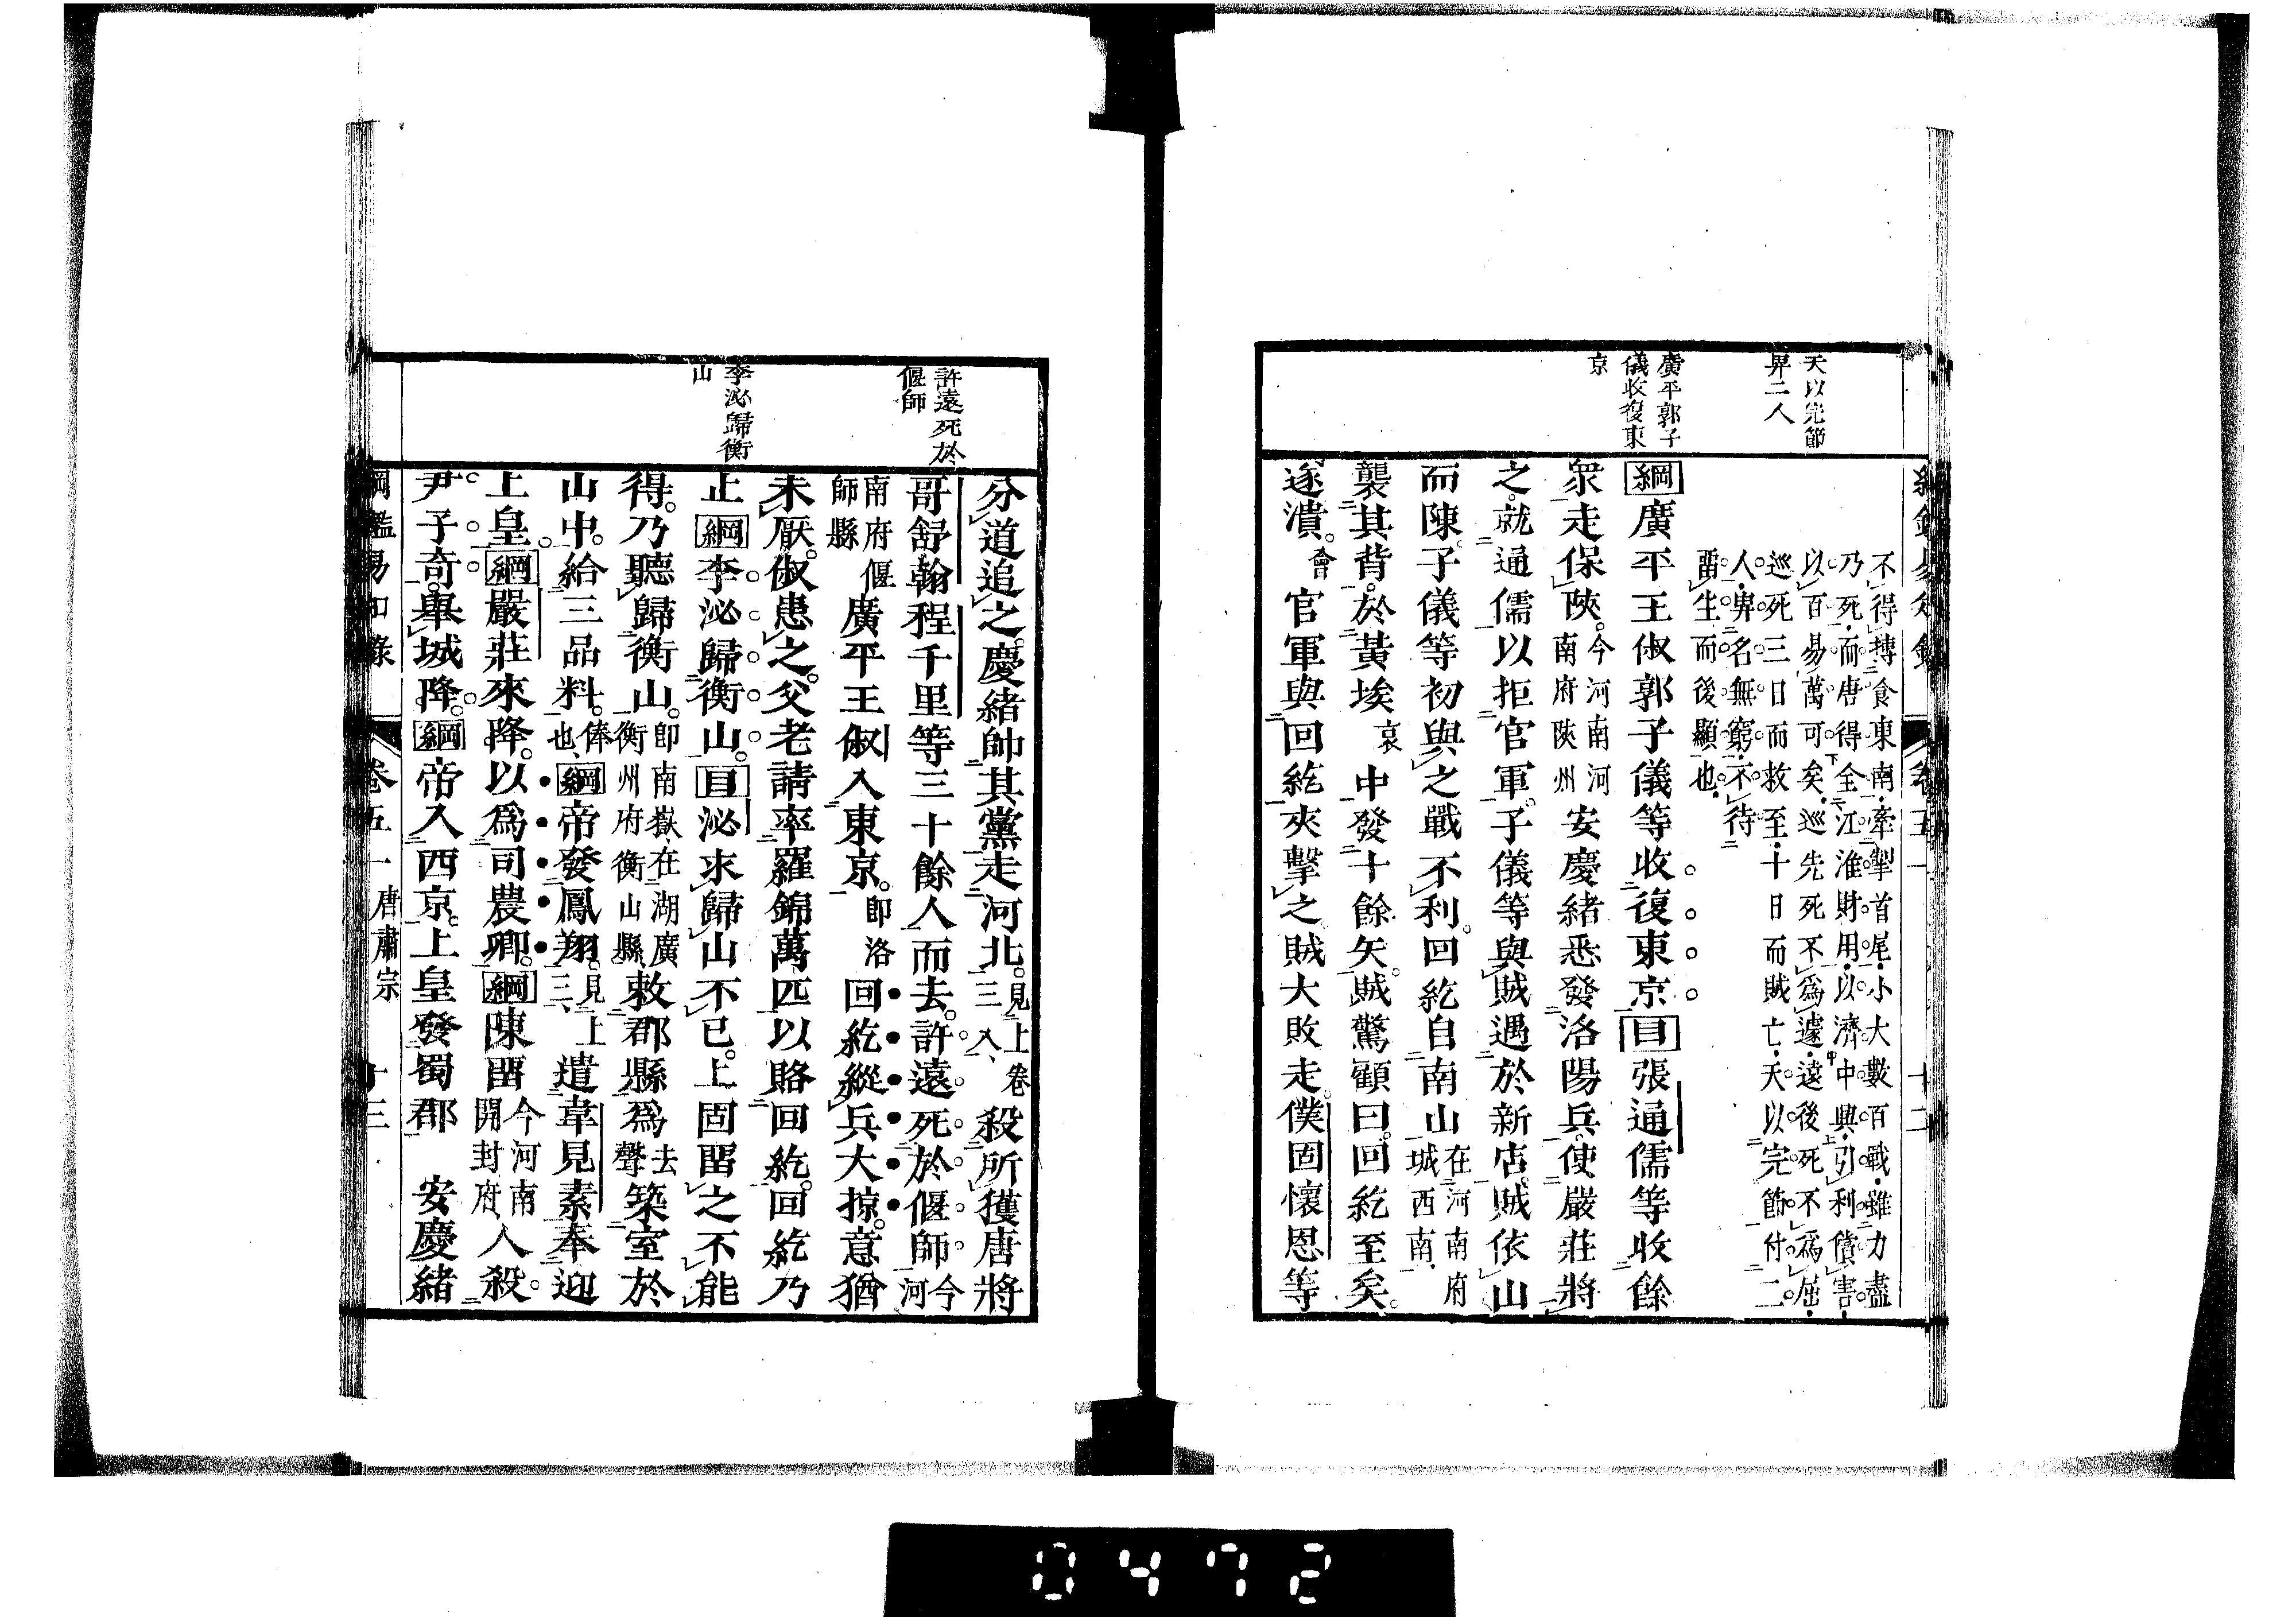 天以完節
畀二人
廣平郭子
儀收復東
京
不得搏食東南牽掣首尾小大數百戰雖力盡
乃死而唐得全江淮財用以濟中興引利償害
以百易萬可矣巡先死不爲遽遠後死不爲屈
巡死三日而救至十日而賊亡天以完節付二
人畀名無窮不待
畱生而後顯也
綱廣平王俶郭子儀等收復東京目張通儒等收餘
衆走保陝今河南河南府陝州安慶緒悉發洛陽兵使嚴莊將
之就通儒以拒官軍子儀等與賊遇於新店賊依山
而陳子儀等初與之戰不利回紇自南山在河南府城西南
襲其背於黃埃哀中發十餘矢賊驚顧曰回紇至矣
遂潰會官軍與回紇夾擊之賊大敗走僕固懷恩等
許遠死於
偃師
李泌歸衡
山
分道追之慶緒帥其黨走河北見上卷三八殺所獲唐將
哥舒翰程千里等三十餘人而去許遠死於偃師今河
南府偃師縣廣平王俶入東京卽洛回紇縱兵大掠意猶
未厭俶患之父老請率羅錦萬匹以賂回紇回紇乃
止綱李泌歸衡山目泌求歸山不已上固畱之不能
得乃聽歸衡山卽南嶽在湖廣衡州府衡山縣敕郡縣爲去聲築室於
山中給三品料俸也綱帝發鳳翔見上三遣韋見素奉迎
上皇綱嚴莊來降以爲司農卿綱陳畱今河南開封府人殺
尹子奇舉城降綱帝入西京上皇發蜀郡 安慶緒
綱鑑易知錄 卷五一 唐肅宗 十三